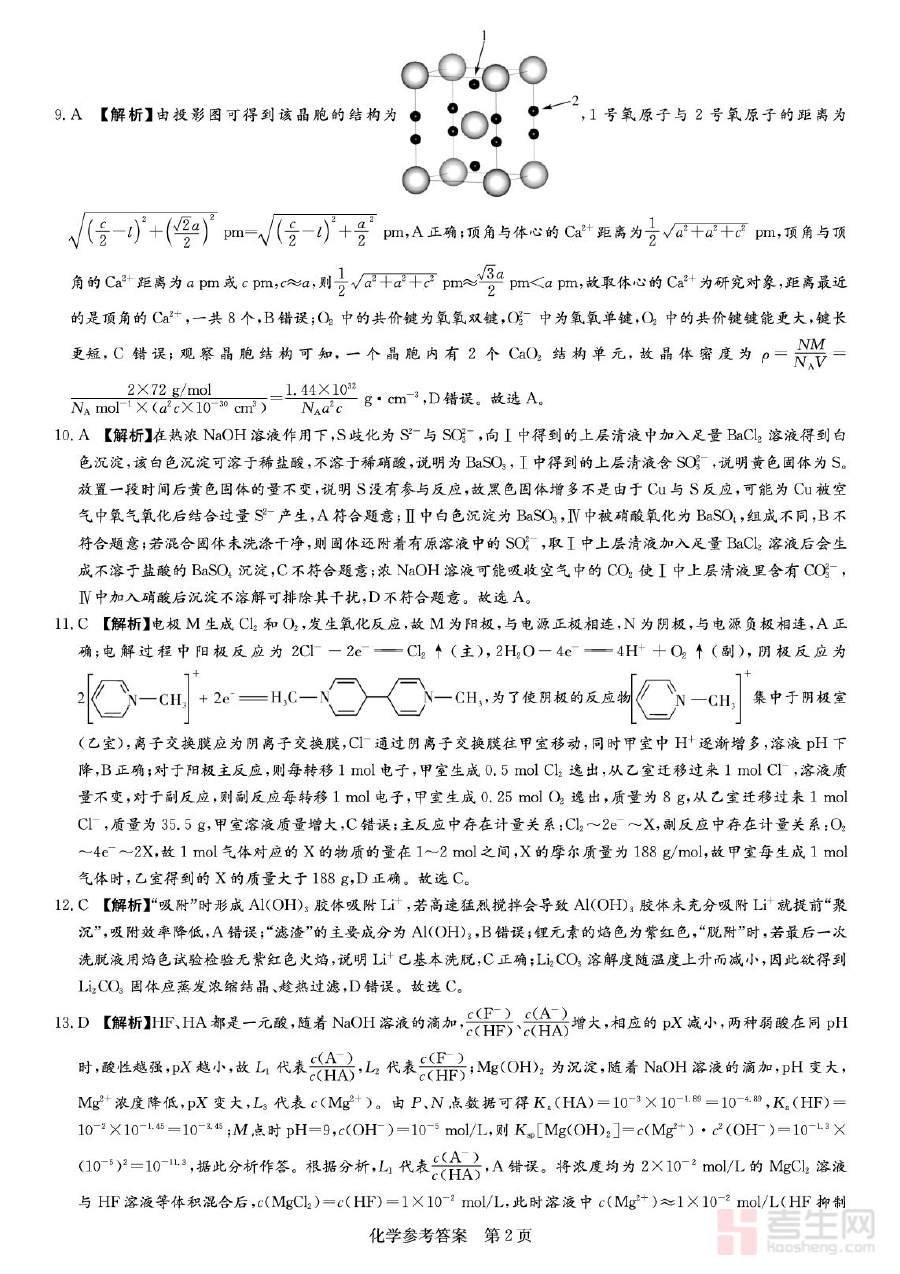 1
2
9. A 【解析】由投影图可得到该晶胞的结构为 ,1 号氧原子与 2 号氧原子的距离为
√((c/2−l)²+(√2a/2)²) pm=√((c/2−l)²+a²/2) pm,A 正确;顶角与体心的 Ca²⁺ 距离为 1/2 √(a²+a²+c²) pm,顶角与顶
角的 Ca²⁺ 距离为 a pm 或 c pm,c≈a,则 1/2 √(a²+a²+c²) pm≈√3a/2 pm<a pm,故取体心的 Ca²⁺ 为研究对象,距离最近
的是顶角的 Ca²⁺,一共 8 个,B 错误;O₂ 中的共价键为氧氧双键,O₂²⁻ 中为氧氧单键,O₂ 中的共价键键能更大,键长
更短,C 错误;观察晶胞结构可知,一个晶胞内有 2 个 CaO₂ 结构单元,故晶体密度为 ρ=NM/(N_A V)=
2×72 g/mol/(N_A mol⁻¹×(a²c×10⁻³⁰ cm³))=1.44×10³²/(N_A a²c) g·cm⁻³,D 错误。故选 A。
10. A 【解析】在热浓 NaOH 溶液作用下,S 歧化为 S²⁻ 与 SO₃²⁻,向Ⅰ中得到的上层清液中加入足量 BaCl₂ 溶液得到白
色沉淀,该白色沉淀可溶于稀盐酸,不溶于稀硝酸,说明为 BaSO₃,Ⅰ中得到的上层清液含 SO₃²⁻,说明黄色固体为 S。
放置一段时间后黄色固体的量不变,说明 S 没有参与反应,故黑色固体增多不是由于 Cu 与 S 反应,可能为 Cu 被空
气中氧气氧化后结合过量 S²⁻ 产生,A 符合题意;Ⅱ中白色沉淀为 BaSO₃,Ⅳ中被硝酸氧化为 BaSO₄,组成不同,B 不
符合题意;若混合固体未洗涤干净,则固体还附着有原溶液中的 SO₄²⁻,取Ⅰ中上层清液加入足量 BaCl₂ 溶液后会生
成不溶于盐酸的 BaSO₄ 沉淀,C 不符合题意;浓 NaOH 溶液可能吸收空气中的 CO₂ 使Ⅰ中上层清液里含有 CO₃²⁻,
Ⅳ中加入硝酸后沉淀不溶解可排除其干扰,D 不符合题意。故选 A。
11. C 【解析】电极 M 生成 Cl₂ 和 O₂,发生氧化反应,故 M 为阳极,与电源正极相连,N 为阴极,与电源负极相连,A 正
确;电解过程中阳极反应为 2Cl⁻−2e⁻══Cl₂↑(主),2H₂O−4e⁻══4H⁺+O₂↑(副),阴极反应为
2[N—CH₃]⁺+2e⁻══H₃C—N N—CH₃,为了使阴极的反应物[N—CH₃]⁺集中于阴极室
(乙室),离子交换膜应为阴离子交换膜,Cl⁻ 通过阴离子交换膜往甲室移动,同时甲室中 H⁺ 逐渐增多,溶液 pH 下
降,B 正确;对于阳极主反应,则每转移 1 mol 电子,甲室生成 0.5 mol Cl₂ 逸出,从乙室迁移过来 1 mol Cl⁻,溶液质
量不变,对于副反应,则副反应每转移 1 mol 电子,甲室生成 0.25 mol O₂ 逸出,质量为 8 g,从乙室迁移过来 1 mol
Cl⁻,质量为 35.5 g,甲室溶液质量增大,C 错误;主反应中存在计量关系:Cl₂~2e⁻~X,副反应中存在计量关系:O₂
~4e⁻~2X,故 1 mol 气体对应的 X 的物质的量在 1~2 mol 之间,X 的摩尔质量为 188 g/mol,故甲室每生成 1 mol
气体时,乙室得到的 X 的质量大于 188 g,D 正确。故选 C。
12. C 【解析】“吸附”时形成 Al(OH)₃ 胶体吸附 Li⁺,若高速猛烈搅拌会导致 Al(OH)₃ 胶体未充分吸附 Li⁺ 就提前“聚
沉”,吸附效率降低,A 错误;“滤渣”的主要成分为 Al(OH)₃,B 错误;锂元素的焰色为紫红色,“脱附”时,若最后一次
洗脱液用焰色试验检验无紫红色火焰,说明 Li⁺ 已基本洗脱,C 正确;Li₂CO₃ 溶解度随温度上升而减小,因此欲得到
Li₂CO₃ 固体应蒸发浓缩结晶、趁热过滤,D 错误。故选 C。
13. D 【解析】HF、HA 都是一元酸,随着 NaOH 溶液的滴加,c(F⁻)/c(HF)、c(A⁻)/c(HA)增大,相应的 pX 减小,两种弱酸在同 pH
时,酸性越强,pX 越小,故 L₁ 代表c(A⁻)/c(HA),L₂ 代表c(F⁻)/c(HF);Mg(OH)₂ 为沉淀,随着 NaOH 溶液的滴加,pH 变大,
Mg²⁺ 浓度降低,pX 变大,L₃ 代表 c(Mg²⁺)。由 P、N 点数据可得 Kₐ(HA)=10⁻³×10⁻¹·⁸⁹=10⁻⁴·⁸⁹,Kₐ(HF)=
10⁻²×10⁻¹·⁴⁵=10⁻³·⁴⁵;M 点时 pH=9,c(OH⁻)=10⁻⁵ mol/L,则 Ksp[Mg(OH)₂]=c(Mg²⁺)·c²(OH⁻)=10⁻¹·³×
(10⁻⁵)²=10⁻¹¹·³,据此分析作答。根据分析,L₁ 代表c(A⁻)/c(HA),A 错误。将浓度均为 2×10⁻² mol/L 的 MgCl₂ 溶液
与 HF 溶液等体积混合后,c(MgCl₂)=c(HF)=1×10⁻² mol/L,此时溶液中 c(Mg²⁺)≈1×10⁻² mol/L(HF 抑制
化学参考答案 第 2 页
考生网
kaosheng.com